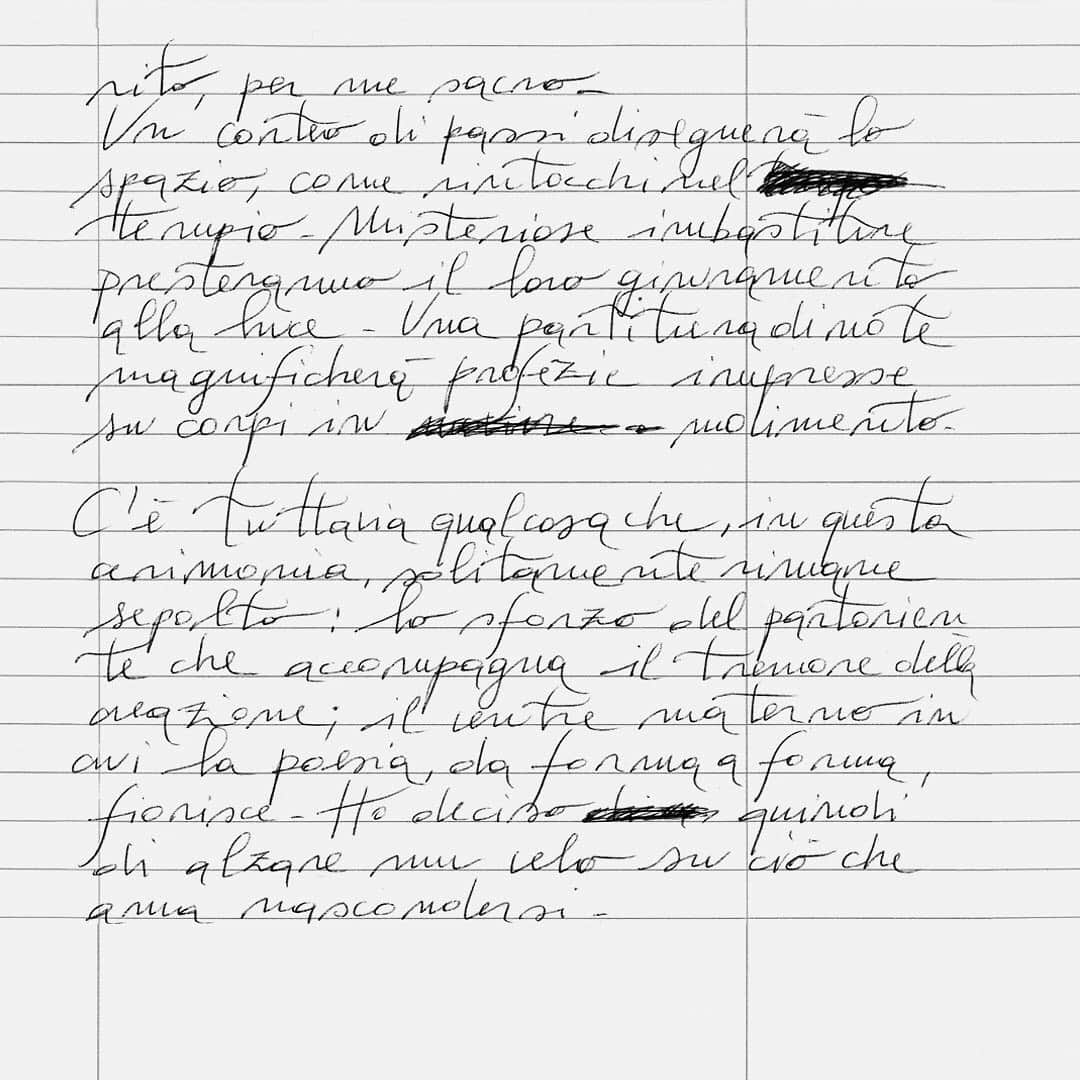 rito, per me sacro.
Un conteo di passi disegnerà lo
spazio, come rintocchi nel
tempio. Misteriose imbastiture
presteranno il loro giuramento
alla luce. Una partitura di note
magnificherà profezie impresse
su corpi in molimento.
C'è tuttavia qualcosa che, in questa
cerimonia, solitamente rimane
sepolto: lo sforzo del partorien
te che accompagna il tremore della
creazione; il ventre materno in
cui la poesia, da forma a forma,
fiorisce. Ho deciso quindi
di alzare un velo su ciò che
ama nascondersi.